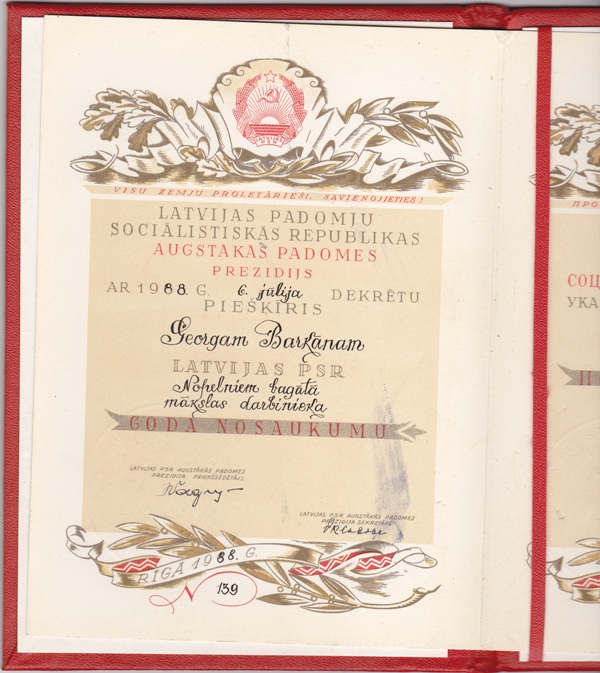 LATVIJAS
PSR
VISU ZEMJU PROLETĀRIEŠI, SAVIENOJIETIES!
LATVIJAS PADOMJU
SOCIĀLISTISKĀS REPUBLIKAS
AUGSTĀKĀS PADOMES
PREZIDIJS
AR 1988. G. 6. jūlija DEKRĒTU
PIEŠĶĪRIS
Georgam Barkānam
LATVIJAS PSR
Nopelniem bagātā
mākslas darbinieka
GODA NOSAUKUMU
LATVIJAS PSR AUGSTĀKĀS PADOMES
PREZIDIJA PRIEKŠSĒDĒTĀJS
LATVIJAS PSR AUGSTĀKĀS PADOMES
PREZIDIJA SEKRETĀRS
RĪGĀ 1988. G.
N 139
ПРО
СОЦ
УКА
П